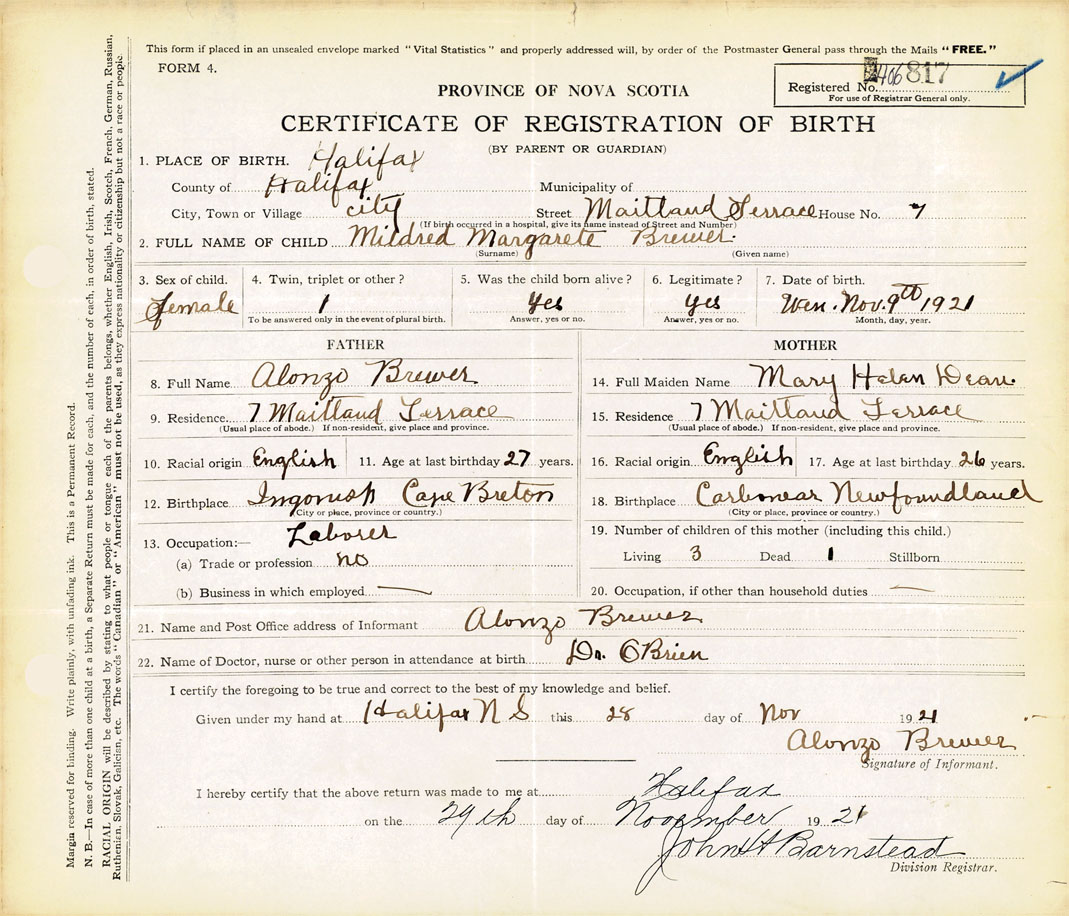 This form if placed in an unsealed envelope marked "Vital Statistics" and properly addressed will, by order of the Postmaster General pass through the Mails "FREE."
FORM 4.
406 817
Registered No.
For use of Registrar General only.
PROVINCE OF NOVA SCOTIA
CERTIFICATE OF REGISTRATION OF BIRTH
(BY PARENT OR GUARDIAN)
1. PLACE OF BIRTH. Halifax
County of Halifax Municipality of
City, Town or Village city Street Maitland Terrace House No. 7
(If birth occurred in a hospital, give its name instead of Street and Number)
2. FULL NAME OF CHILD Mildred Margarete Brewer.
(Surname) (Given name)
3. Sex of child. 4. Twin, triplet or other? 5. Was the child born alive? 6. Legitimate? 7. Date of birth.
female 1 Yes Yes Wen. Nov. 9th 1921
To be answered only in the event of plural birth. Answer, yes or no. Answer, yes or no. Month, day, year.
FATHER MOTHER
8. Full Name Alonzo Brewer 14. Full Maiden Name Mary Helen Dean.
9. Residence 7 Maitland Terrace 15. Residence 7 Maitland Terrace
(Usual place of abode.) If non-resident, give place and province. (Usual place of abode.) If non-resident, give place and province.
10. Racial origin English 11. Age at last birthday 27 years. 16. Racial origin English 17. Age at last birthday 26 years.
12. Birthplace Ingonish Cape Breton 18. Birthplace Carbonear Newfoundland
(City or place, province or country.) (City or place, province or country.)
13. Occupation:— Laborer 19. Number of children of this mother (including this child.)
(a) Trade or profession no Living 3 Dead 1 Stillborn
(b) Business in which employed — 20. Occupation, if other than household duties —
21. Name and Post Office address of Informant Alonzo Brewer
22. Name of Doctor, nurse or other person in attendance at birth Dr. OBrien
I certify the foregoing to be true and correct to the best of my knowledge and belief.
Given under my hand at Halifax N S this 28 day of Nov 1921
Alonzo Brewer
Signature of Informant.
I hereby certify that the above return was made to me at Halifax
on the 29th day of November 1921
John H Barnstead
Division Registrar.
Margin reserved for binding. Write plainly, with unfading ink. This is a Permanent Record.
N. B.—In case of more than one child at a birth, a Separate Return must be made for each, and the number of each, in order of birth, stated.
RACIAL ORIGIN will be described by stating to what people or tongue each of the parents belongs, whether English, Irish, Scotch, French, German, Russian,
Ruthenian, Slovak, Galician, etc. The words "Canadian" or "American" must not be used, as they express nationality or citizenship but not a race or people.